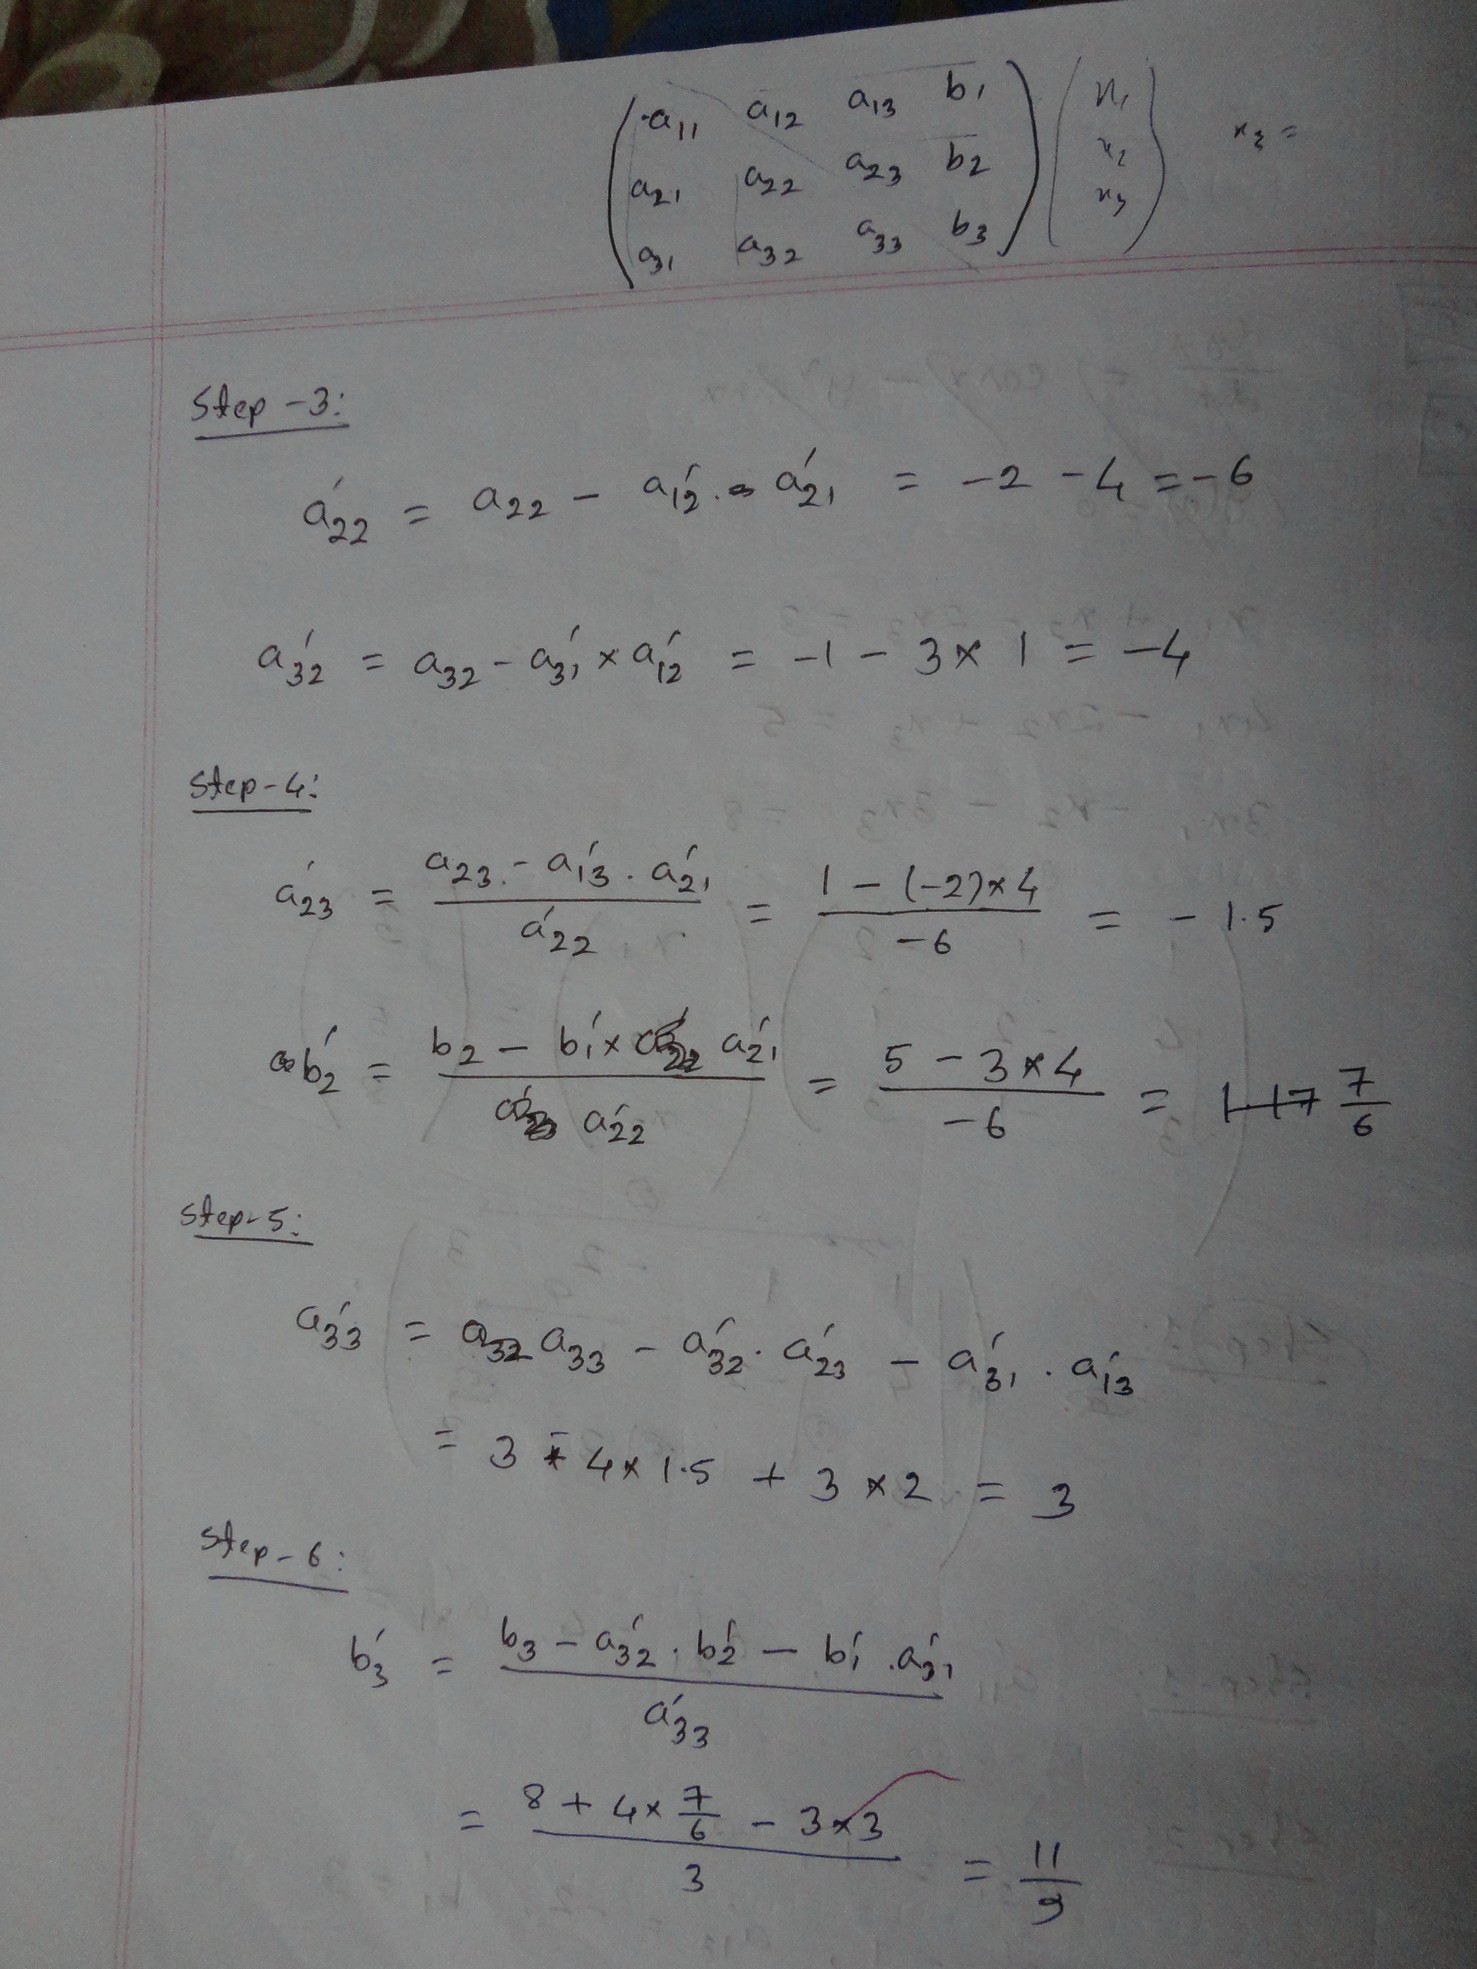 a11 a12 a13 b1 x1
a21 a22 a23 b2 x2 x3 =
a31 a32 a33 b3 x3
Step-3:
a'22 = a22 - a'12 . a'21 = -2 -4 = -6
a'32 = a32 - a'31 × a'12 = -1 - 3 × 1 = -4
Step-4:
a'23 = (a23 - a'13 . a'21) / a'22 = (1 - (-2) × 4) / -6 = -1.5
b'2 = (b2 - b'1 × a'21) / a'22 = (5 - 3 × 4) / -6 = 7/6
Step-5:
a'33 = a33 - a'32 . a'23 - a'31 . a'13
= 3 - 4 × 1.5 + 3 × 2 = 3
Step-6:
b'3 = (b3 - a'32 . b'2 - b'1 . a'31) / a'33
= (8 + 4 × 7/6 - 3 × 3) / 3 = 11/9